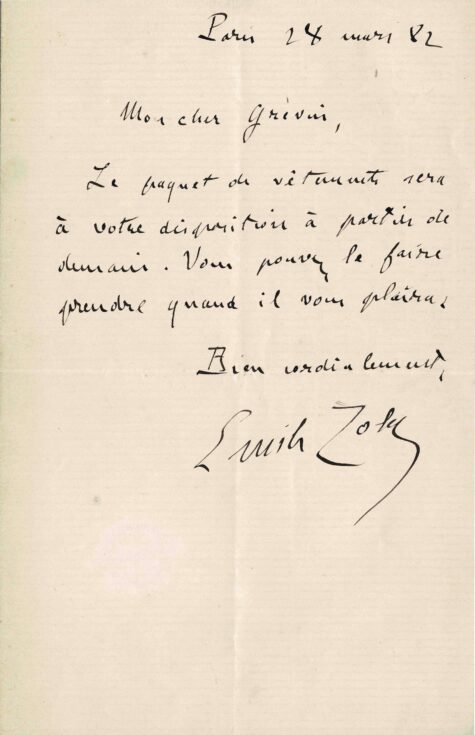 Paris 28 mars 82
Mon cher Grévin,
Le paquet de vêtements sera
à votre disposition à partir de
demain. Vous pouvez le faire
prendre quand il vous plaira.
Bien cordialement,
Emile Zola